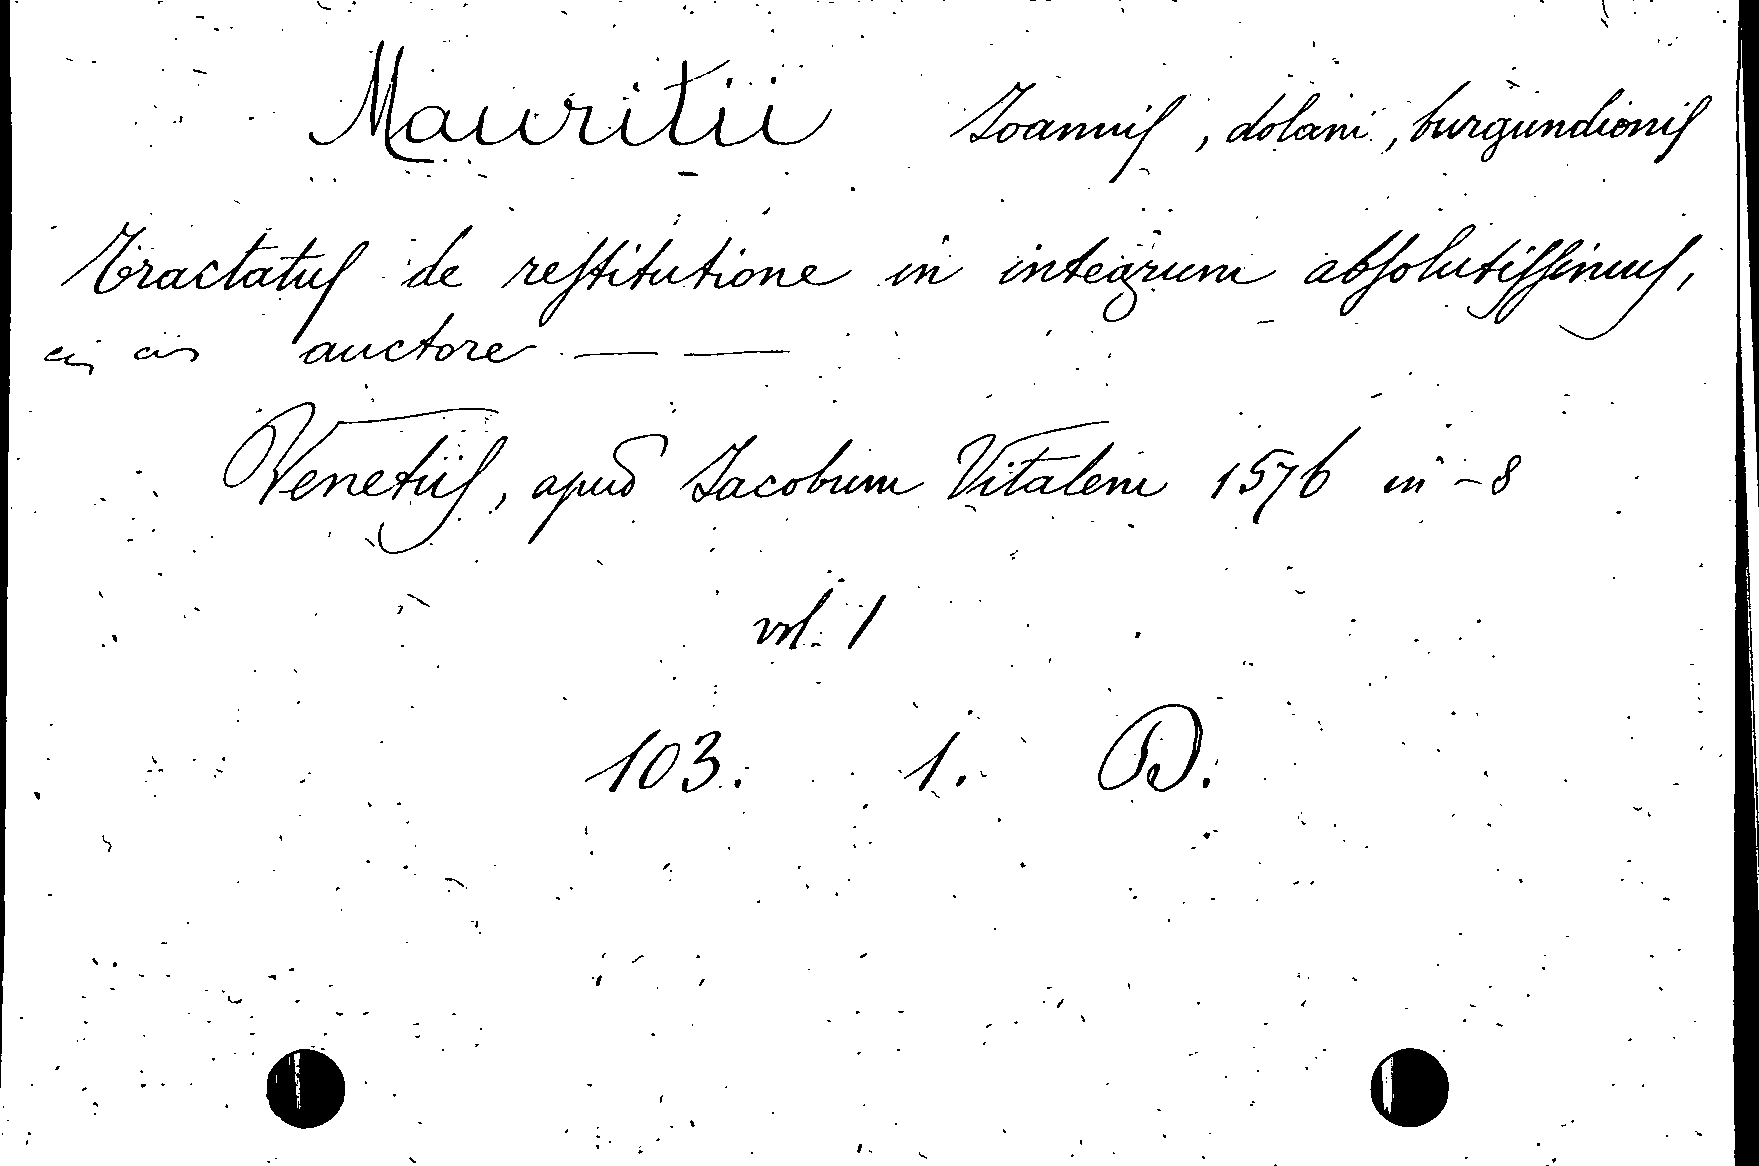 Mauritii Joannis, dolani, burgundionis
Tractatus de restitutione in integrum absolutissimus,
auctore — —
Venetiis, apud Jacobum Vitalem 1576 in -8
vol. 1
103. 1. D.